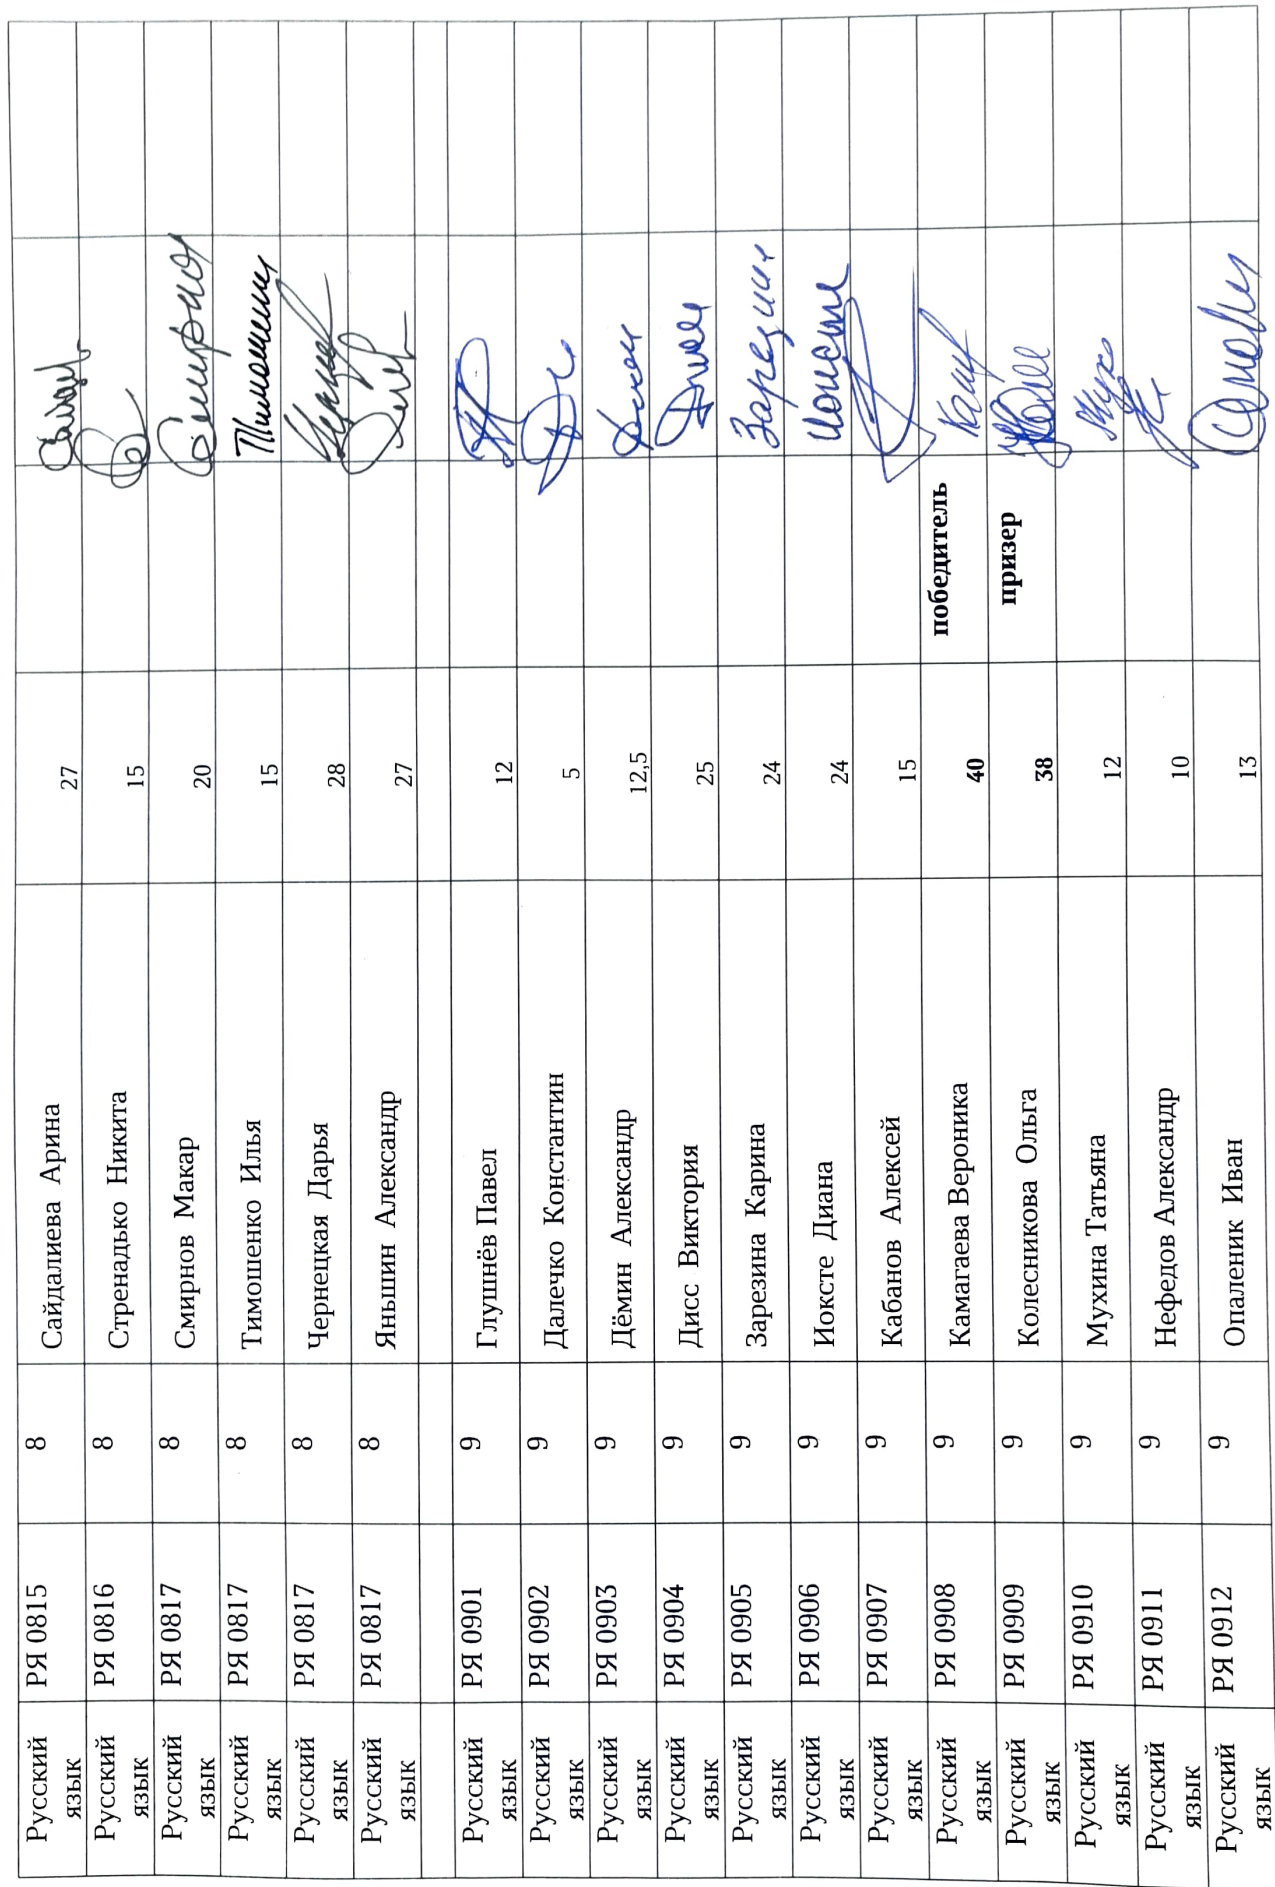 Русский язык РЯ 0815 8 Сайдалиева Арина 27
Русский язык РЯ 0816 8 Стренадько Никита 15
Русский язык РЯ 0817 8 Смирнов Макар 20
Русский язык РЯ 0817 8 Тимошенко Илья 15
Русский язык РЯ 0817 8 Чернецкая Дарья 28
Русский язык РЯ 0817 8 Яньшин Александр 27
Русский язык РЯ 0901 9 Глушнёв Павел 12
Русский язык РЯ 0902 9 Далечко Константин 5
Русский язык РЯ 0903 9 Дёмин Александр 12,5
Русский язык РЯ 0904 9 Дисс Виктория 25
Русский язык РЯ 0905 9 Зарезина Карина 24
Русский язык РЯ 0906 9 Иоксте Диана 24
Русский язык РЯ 0907 9 Кабанов Алексей 15
Русский язык РЯ 0908 9 Камагаева Вероника 40 победитель
Русский язык РЯ 0909 9 Колесникова Ольга 38 призер
Русский язык РЯ 0910 9 Мухина Татьяна 12
Русский язык РЯ 0911 9 Нефедов Александр 10
Русский язык РЯ 0912 9 Опаленик Иван 13